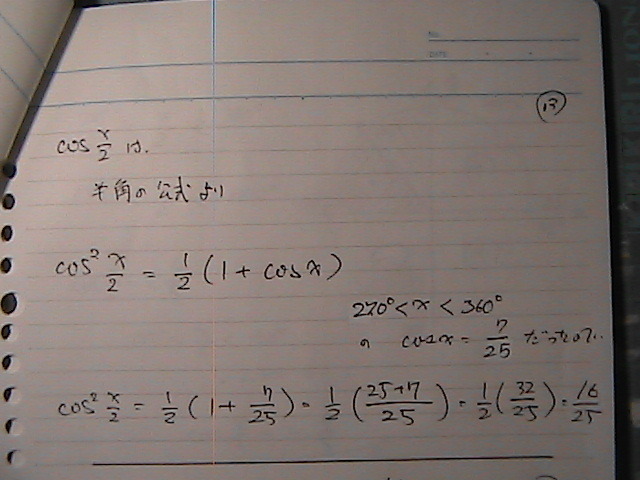 No.
DATE
⑬
cos x/2 は.
半角の公式より
cos² x/2 = 1/2 (1 + cos x)
270° < x < 360°
の cos x = 7/25 だったので..
cos² x/2 = 1/2 (1 + 7/25) = 1/2 ((25+7)/25) = 1/2 (32/25) = 16/25